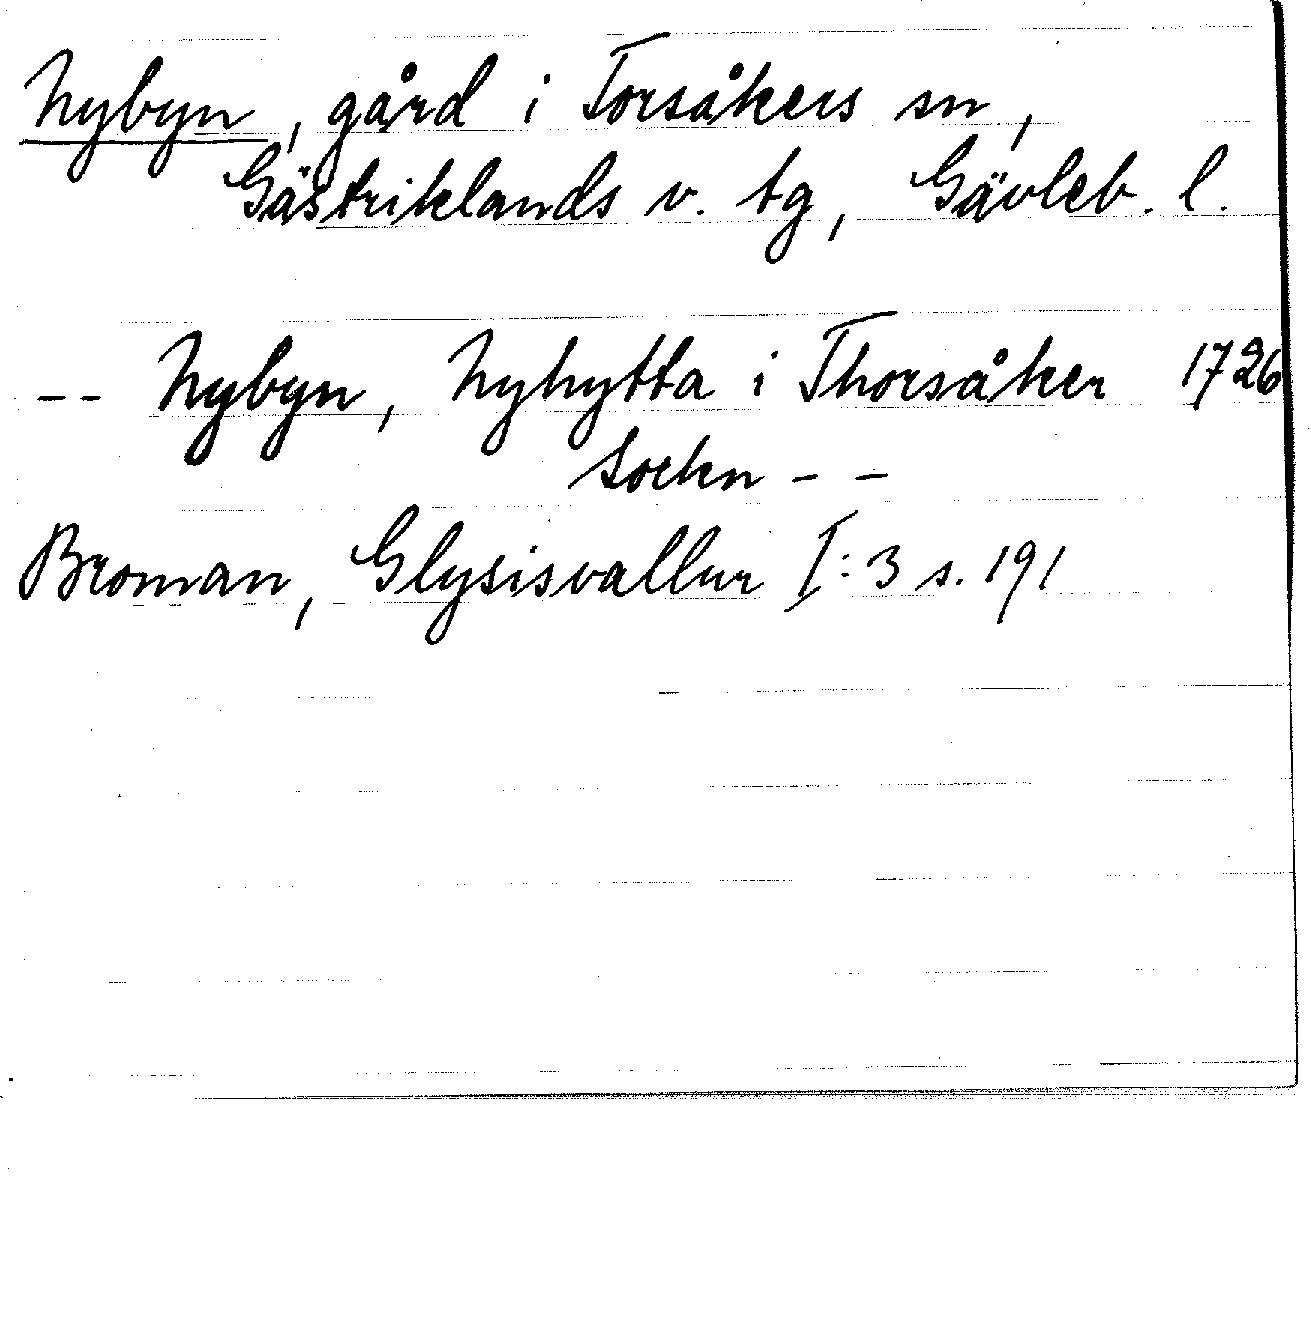 Nybyn, gård i Torsåkers sn,
Gästriklands v. tg, Gävleb. l.
-- Nybyn, Nyhytta i Thorsåker 1726
Sockn - -
Broman, Glysisvallur I:3 s. 191